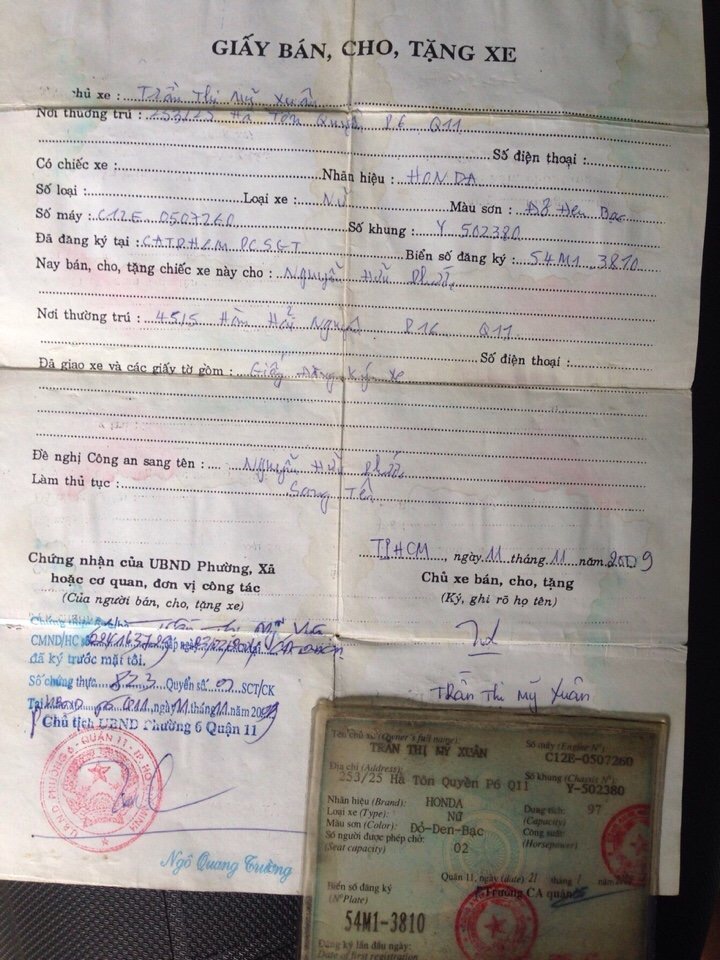 GIẤY BÁN, CHO, TẶNG XE
hủ xe : Trần Thị Mỹ Xuân
Nơi thường trú : 253/25 Hà Tôn Quyền P6 Q11
Số điện thoại :
Có chiếc xe : Nhãn hiệu : HONDA
Số loại : Loại xe : Nữ Màu sơn : Đỏ Đen Bạc
Số máy : C12E 0507260 Số khung : Y 502380
Đã đăng ký tại : CATPHCM PCSGT Biển số đăng ký : 54M1 3810
Nay bán, cho, tặng chiếc xe này cho : Nguyễn Hữu
Nơi thường trú : 45/5 P16 Q11
Số điện thoại :
Đã giao xe và các giấy tờ gồm : Giấy Đăng Ký xe
Đề nghị Công an sang tên : Nguyễn Hữu
Làm thủ tục : Sang Tên
TPHCM, ngày 11 tháng 11 năm 2009
Chứng nhận của UBND Phường, Xã
hoặc cơ quan, đơn vị công tác
(Của người bán, cho, tặng xe)
Chủ xe bán, cho, tặng
(Ký, ghi rõ họ tên)
Trần Thị Mỹ Xuân
CMND/HC số
đã ký trước mặt tôi.
Số chứng thực 823 Quyển số 02 SCT/CK
Tại UBND P6 Q11, ngày 11 tháng 11 năm 2009
Chủ tịch UBND Phường 6 Quận 11
U.B.N.D PHƯỜNG 6 - QUẬN 11 - TP. HỒ CHÍ MINH
Ngô Quang Trường
Trần Thị Mỹ Xuân
Tên chủ xe (Owner's full name):
TRẦN THỊ MỸ XUÂN
Số máy (Engine N°)
C12E-0507260
Địa chỉ (Address):
253/25 Hà Tôn Quyền P6 Q11
Số khung (Chassis N°)
Y-502380
Nhãn hiệu (Brand): HONDA
Loại xe (Type): Nữ
Màu sơn (Color): Đỏ-Đen-Bạc
Số người được phép chở: 02
(Seat capacity)
Dung tích: 97
(Capacity)
Công suất:
(Horsepower)
Quận 11, ngày (date) 21 tháng năm
P.Trưởng CA quận
Biển số đăng ký
(N°Plate)
54M1-3810
Đăng ký lần đầu ngày:
Date of first registration